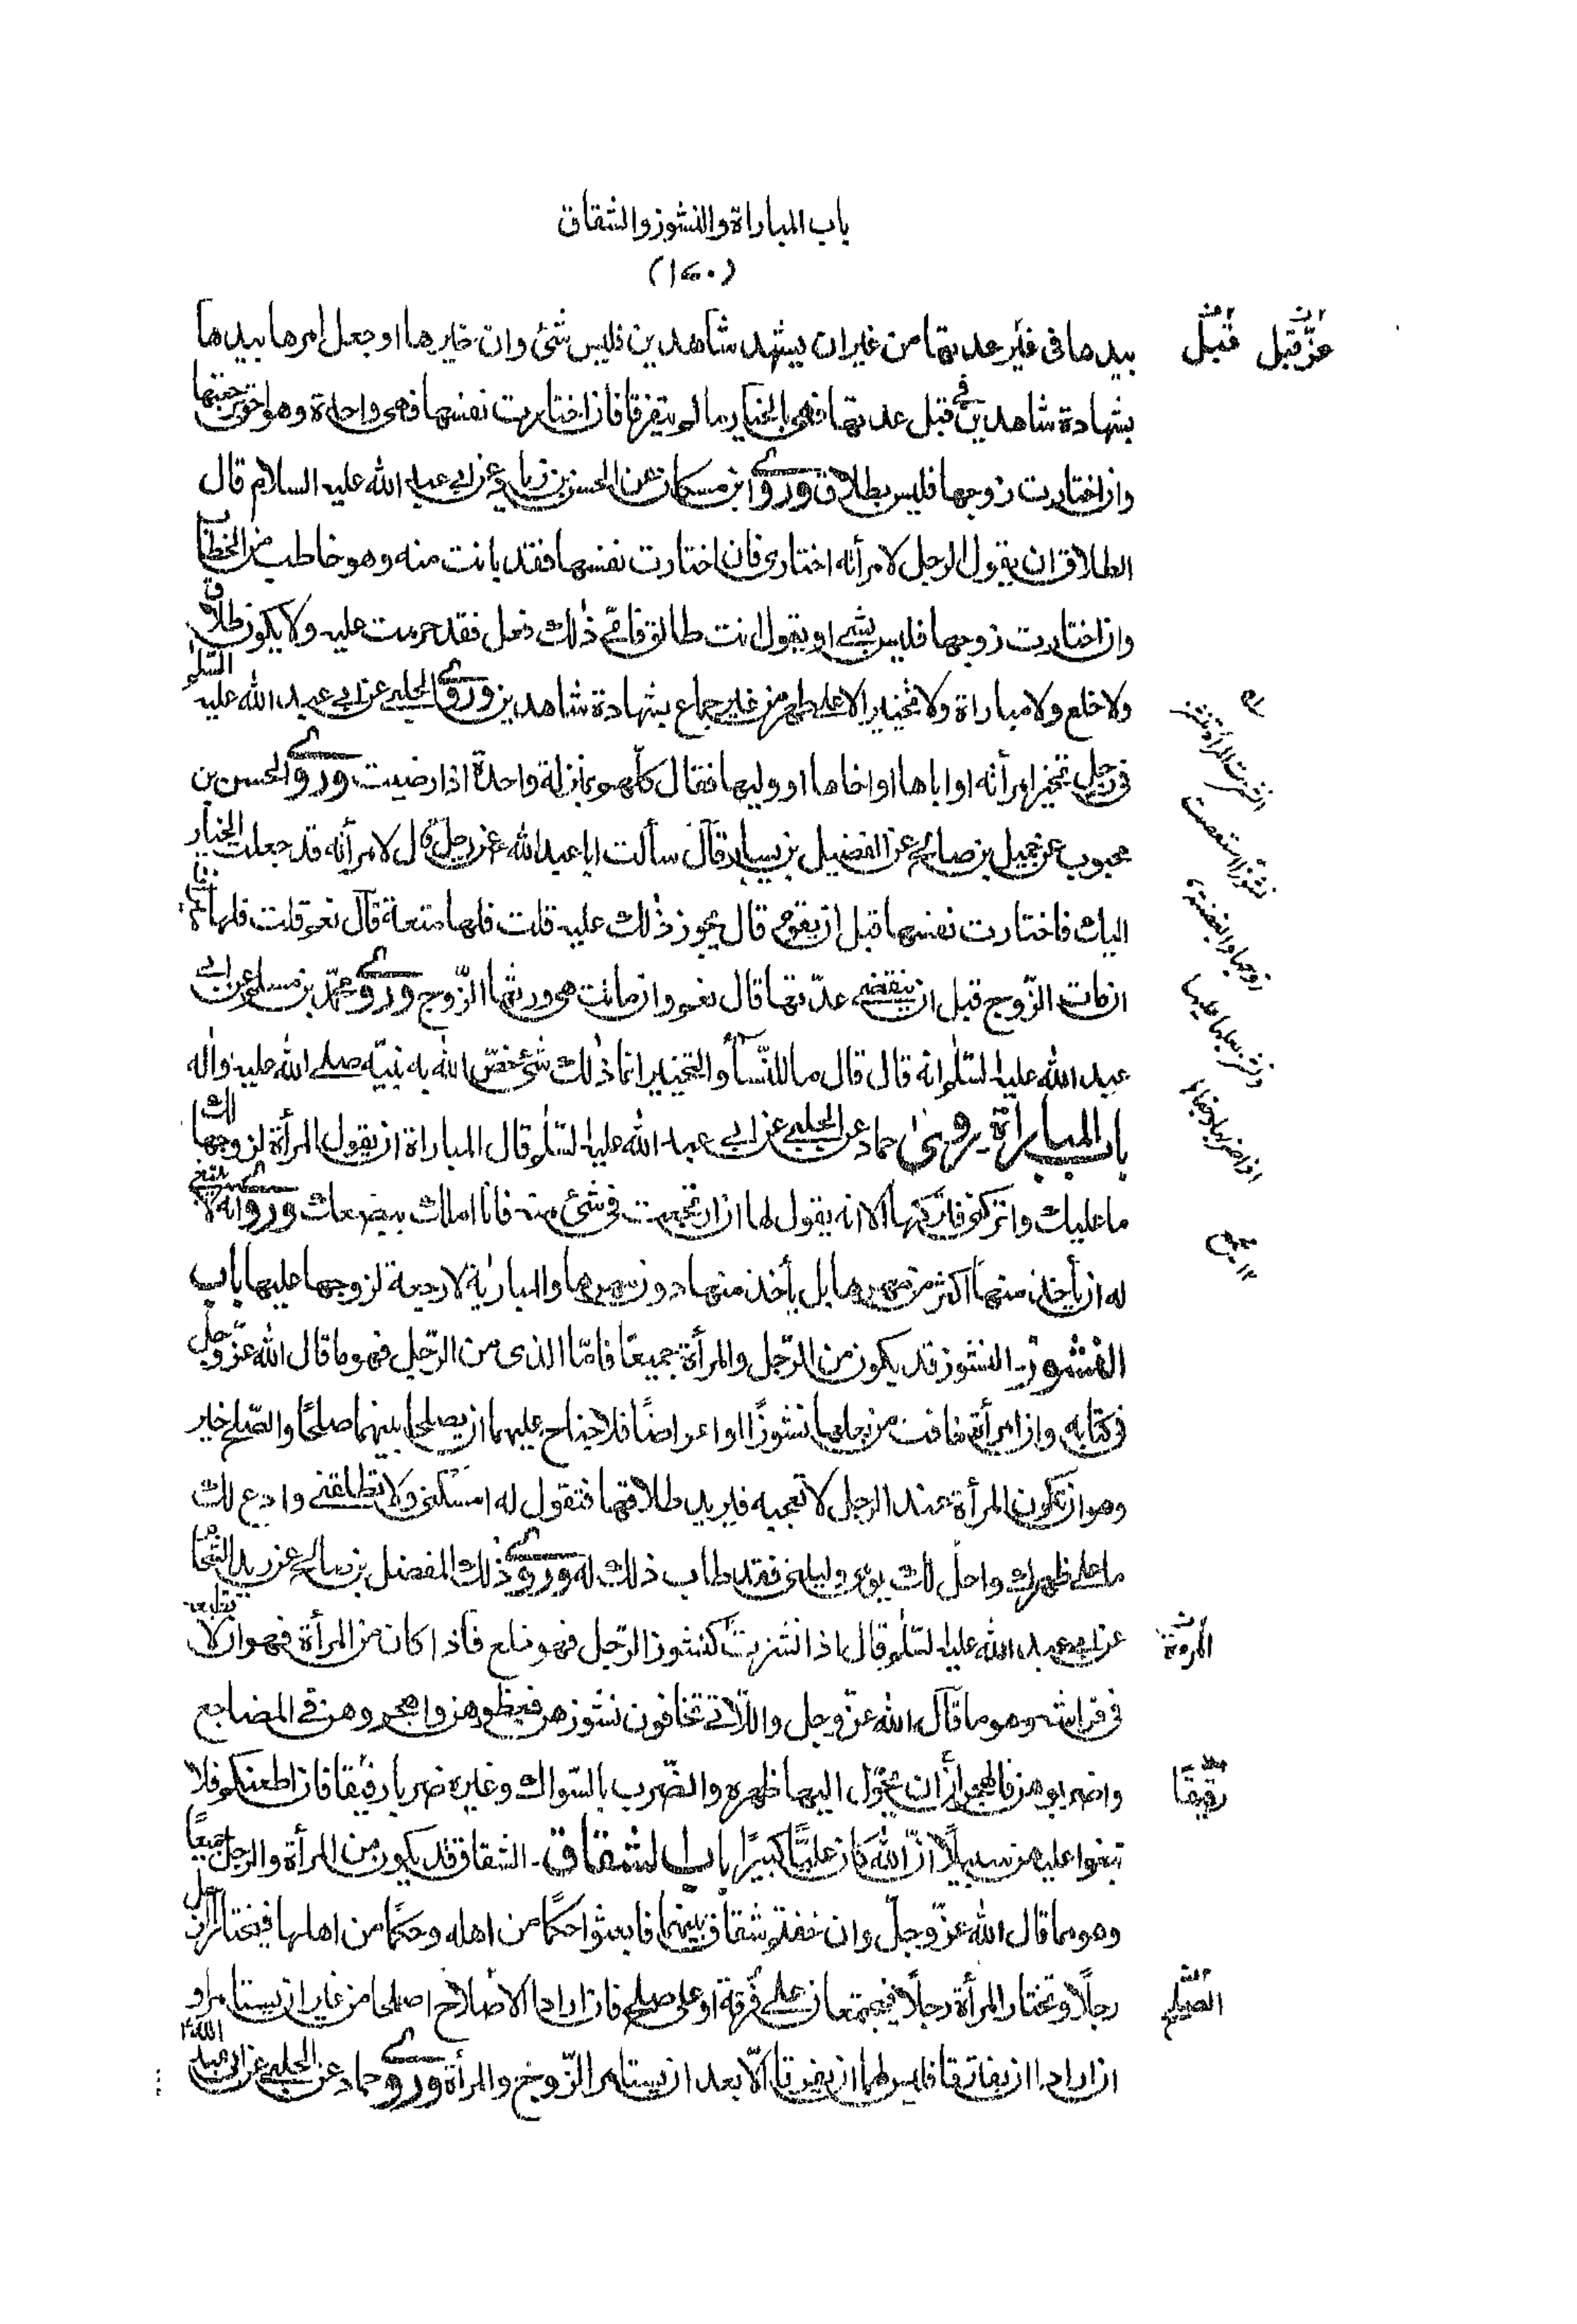 باب المباراة والنشوز والشقاق
(١٧٠)
بيدها فى غير عدتها من غير ان يشهد شاهدين فليس شئ وان خيرها او جعل امرها بيدها
بشهادة شاهدين فى قبل عدتها فهى بالخيار ما لم يتفرقا فان اختارت نفسها فهى واحدة وهو احق برجعتها
وان اختارت زوجها فليس بطلاق وروى ابن مسكان عن الحسن بن زياد عن ابى عبد الله عليه السلام قال
الطلاق ان يقول الرجل لامرأته اختارى فان اختارت نفسها فقد بانت منه وهو خاطب من الخطاب
وان اختارت زوجها فليس بشئ او يقول انت طالق فاىّ ذلك فعل فقد حرمت عليه ولا يكون طلاق
ولا خلع ولا مباراة ولا تخيير الا على طهر من غير جماع بشهادة شاهدين وروى الحلبى عن ابى عبد الله عليه السلم
فى رجل يخير امرأته او اباها او اخاها او وليها فقال كلهم بمنزلة واحدة اذا رضيت وروى الحسن بن
محبوب عن جميل بن صالح عن الفضيل بن يسار قال سألت ابا عبد الله ع عن رجل قال لامرأته قد جعلت الخيار
اليك فاختارت نفسها قبل ان يقوم قال يجوز ذلك عليه قلت فلها متعة قال نعم قلت فلها ميراث
ان مات الزّوج قبل ان ينقضى عدّتها قال نعم وان ماتت هى ورثها الزّوج وروى محمّد بن مسلم عن ابى
عبد الله عليه السّلم انه قال قال ما للنّساء والتخيير انما ذلك شئ خصّ الله به نبيّه صلى الله عليه واله
باب المباراة ـ روى حماد عن الحلبى عن ابى عبد الله عليه السّلم قال المباراة ان يقول المرأة لزوجها لك
ما عليك واتركنى فاتركها الا انه يقول لها ان ارتجعت فى شئ منه فانا املك ببضعك وروى انه لا ينبغى
له ان يأخذ منها اكثر من مهرها بل يأخذ منها دون مهرها والمبارئة لا رجعة لزوجها عليها باب
النشوز ـ النشوز قد يكون من الرّجل والمرأة جميعًا فامّا الذى من الرّجل فهو ما قال الله عزّ وجل
فى كتابه وان امرأة خافت من بعلها نشوزًا او اعراضًا فلا جناح عليهما ان يصلحا بينهما صلحًا والصّلح خير
وهو ان تكون المرأة عند الرجل لا تعجبه فيريد طلاقها فتقول له امسكنى ولا تطلقنى وادع لك
ما على ظهرك واحلّ لك يومى وليلتى فقد طاب ذلك له وروى ذلك المفضل بن صالح عن زيد الشحام
عن ابى عبد الله عليه السّلم قال اذا نشزت كنشوز الرّجل فهو خلع فاذا كان من المرأة فهو ان لا تطيعه
فى فراشه وهو ما قال الله عزّ وجل واللّاتى تخافون نشوزهن فعظوهن واهجروهن فى المضاجع
واضربوهن فالهجر ان يحوّل اليها ظهره والضّرب بالسّواك وغيره ضربا رفيقا فان اطعنكم فلا
تبغوا عليهن سبيلًا انّ الله كان عليّا كبيرًا باب الشقاق ـ الشقاق قد يكون من المرأة والرجل جميعًا
وهو مما قال الله عزّ وجلّ وان خفتم شقاق بينهما فابعثوا حكمًا من اهله وحكمًا من اهلها فيختار الرجل
رجلًا وتختار المرأة رجلًا فيجتمعان على فرقة او على صلح فان ارادا الاصلاح اصلحا من غير ان يستامرا و
ان ارادا ان يفارقا فليس لهما ان يفرقا الّا بعد ان يستامرا الزّوج والمرأة وروى حماد عن الحلبى عن ابى عبد الله ع
عزّ قبل
قبل
المروة
رقيقا
الصلح